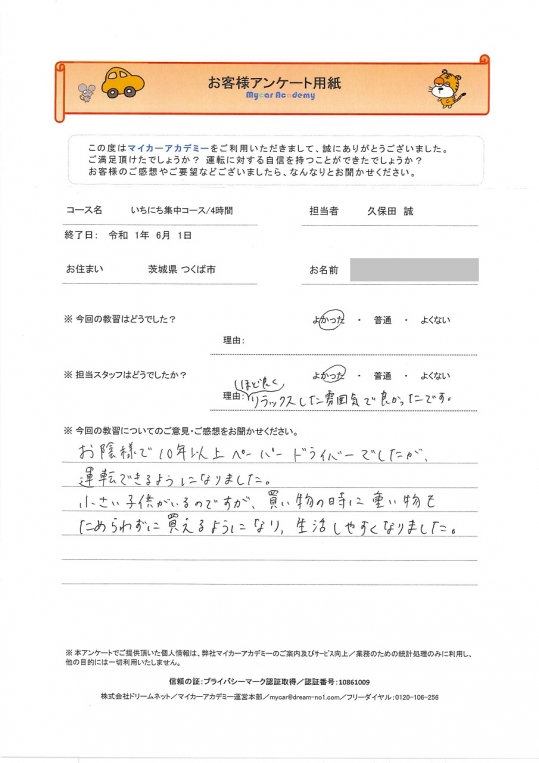 お客様アンケート用紙
Mycar Academy
この度はマイカーアカデミーをご利用いただきまして、誠にありがとうございました。
ご満足頂けたでしょうか？ 運転に対する自信を持つことができたでしょうか？
お客様のご感想やご要望などございましたら、なんなりとお聞かせください。
コース名 いちにち集中コース/4時間 担当者 久保田 誠
終了日： 令和 1年 6月 1日
お住まい 茨城県 つくば市 お名前
※ 今回の教習はどうでした？ よかった ・ 普通 ・ よくない
理由:
※ 担当スタッフはどうでしたか？ よかった ・ 普通 ・ よくない
ほど良く
理由: リラックスした雰囲気で良かったです。
※ 今回の教習についてのご意見・ご感想をお聞かせください。
お陰様で10年以上ペーパードライバーでしたが、
運転できるようになりました。
小さい子供がいるのですが、買い物の時に重い物も
ためらわずに買えるようになり、生活しやすくなりました。
※ 本アンケートでご提供頂いた個人情報は、弊社マイカーアカデミーのご案内及びサービス向上／業務のための統計処理のみに利用し、
他の目的には一切利用いたしません。
信頼の証：プライバシーマーク認証取得／認証番号：10861009
株式会社ドリームネット／マイカーアカデミー運営本部／mycar@dream-no1.com／フリーダイヤル：0120-106-256